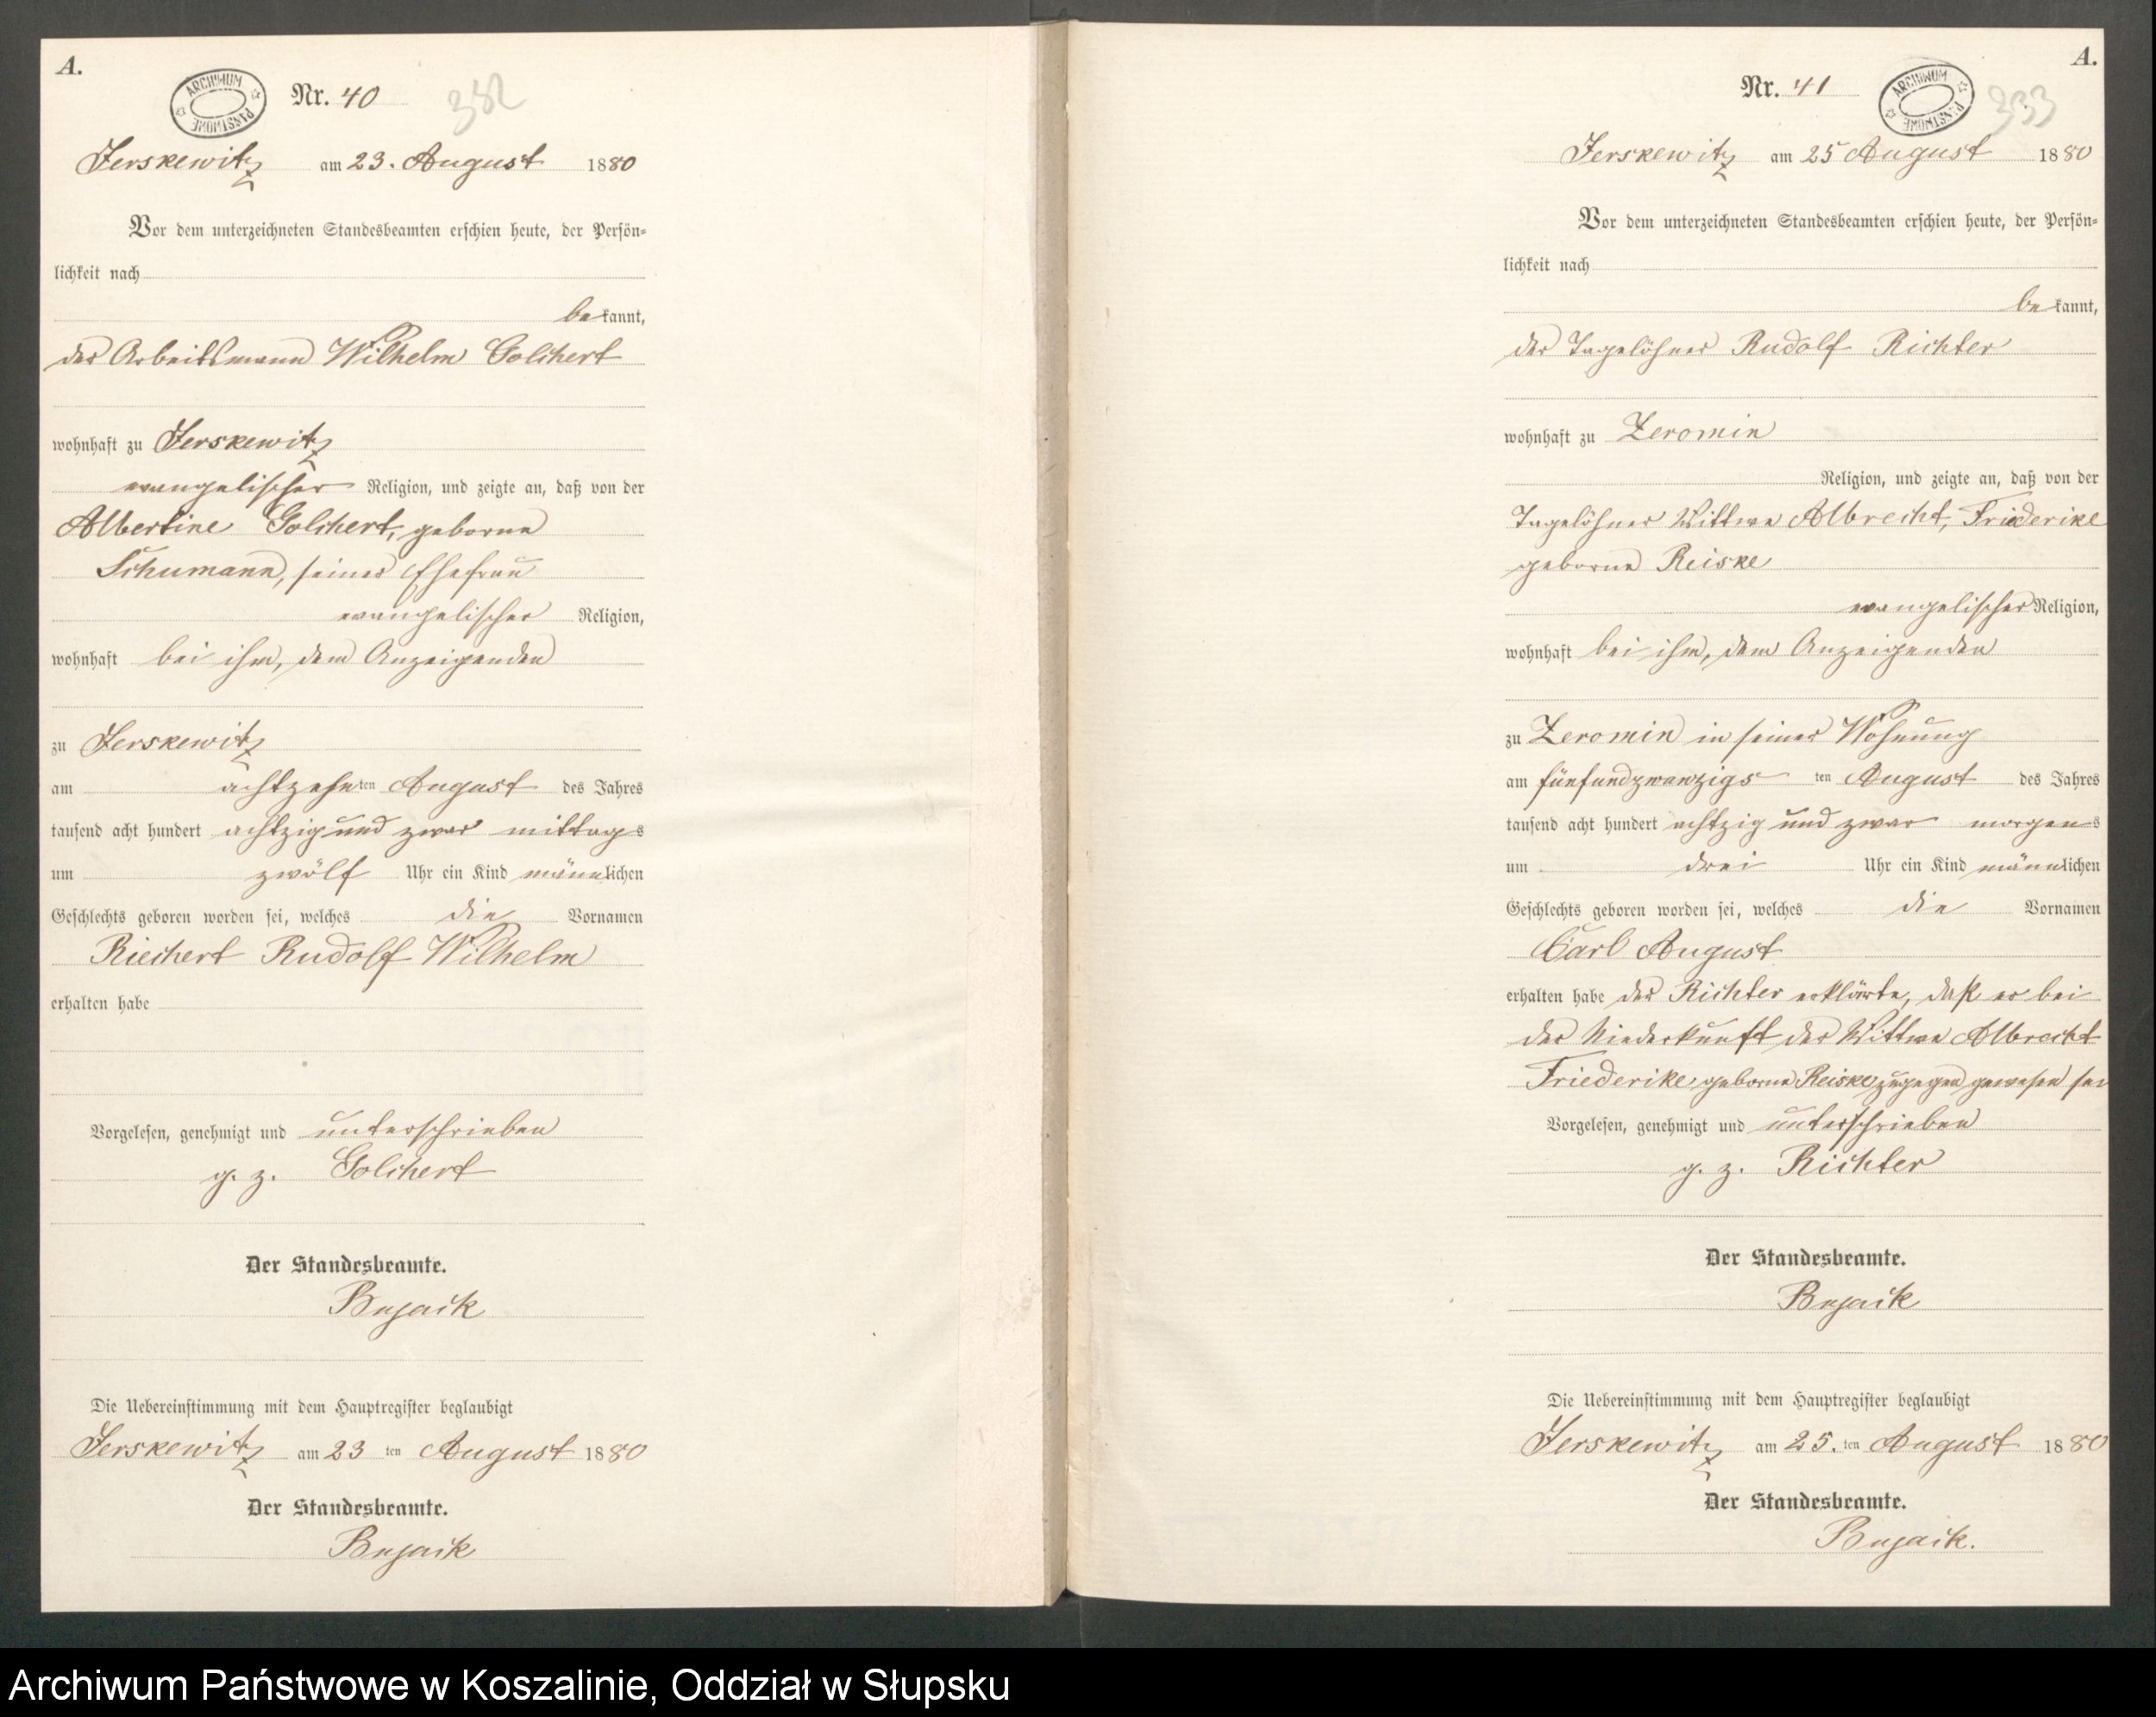 A.
ARCHIWUM PAŃSTWOWE
Nr. 40
Jerskewitz am 23. August 1880
Vor dem unterzeichneten Standesbeamten erschien heute, der Persön-
lichkeit nach
bekannt,
der Arbeitsmann Wilhelm Golchert
wohnhaft zu Jerskewitz
evangelischer Religion, und zeigte an, daß von der
Albertine Golchert, geborne
Schumann, seiner Ehefrau
evangelischer Religion,
wohnhaft bei ihm, dem Anzeigenden
zu Jerskewitz
am achtzehnten August des Jahres
tausend acht hundert achtzig und zwar mittags
um zwölf Uhr ein Kind männlichen
Geschlechts geboren worden sei, welches die Vornamen
Riechert Rudolf Wilhelm
erhalten habe
Vorgelesen, genehmigt und unterschrieben
g. z. Golchert
Der Standesbeamte.
Die Uebereinstimmung mit dem Hauptregister beglaubigt
Jerskewitz am 23 ten August 1880
Der Standesbeamte.
A.
Nr. 41
ARCHIWUM PAŃSTWOWE
333
Jerskewitz am 25 August 1880
Vor dem unterzeichneten Standesbeamten erschien heute, der Persön-
lichkeit nach
bekannt,
der Tagelöhner Rudolf Richter
wohnhaft zu Zeromin
Religion, und zeigte an, daß von der
Tagelöhner Wittwe Albrecht, Friederike
geborne Reiske
evangelischer Religion,
wohnhaft bei ihm, dem Anzeigenden
zu Zeromin in seiner Wohnung
am fünfundzwanzigs ten August des Jahres
tausend acht hundert achtzig und zwar morgens
um drei Uhr ein Kind männlichen
Geschlechts geboren worden sei, welches die Vornamen
Carl August
erhalten habe der Richter erklärte, daß er bei
der Niederkunft der Wittwe Albrecht
Friederike geborne Reiske zugegen gewesen sei
Vorgelesen, genehmigt und unterschrieben
g. z. Richter
Der Standesbeamte.
Die Uebereinstimmung mit dem Hauptregister beglaubigt
Jerskewitz am 25. ten August 1880
Der Standesbeamte.
Archiwum Państwowe w Koszalinie, Oddział w Słupsku